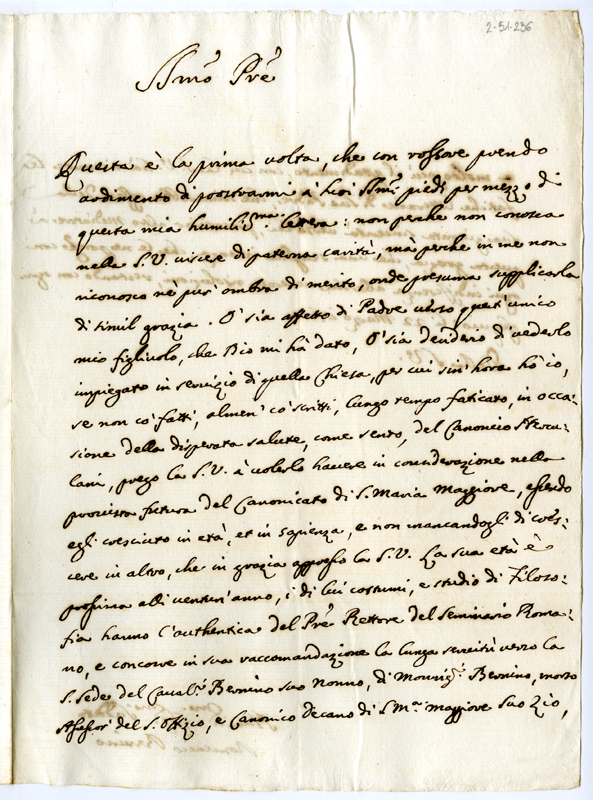 2-51-236
Bmo Prē
Questa è la prima volta, che con rossore prendo
ardimento di prostrarmi à suoi Bmi piedi per mezzo di
questa mia humilis.ma lettera: non perche non conosca
nella S.V. viscere di paterna carità, mà perche in me non
riconosco nè pur' ombra di merito, onde presuma supplicarla
di simil grazia. O' sia affetto di Padre verso quest'unico
mio figliuolo, che Dio mi hà dato, O' sia desiderio di vederlo
impiegato in servizio di quella Chiesa, per cui sin' hora hò io,
se non co' fatti, almen' co' scritti, lungo tempo faticato, in occa-
sione della disperata salute, come sento, del Canonico Hercu-
lani, prego la S.V. à volerlo havere in considerazione nella
provista futura del Canonicato di S. Maria Maggiore, essendo
egli cresciuto in età, et in sapienza, e non mancandogli di cres-
cere in altro, che in grazia appresso la S.V. La sua età è
prossima alli ventun' anno, i di lui costumi, e studio di Filoso-
fia hanno l'authentica del Prē Rettore del Seminario Roma-
no, e concorre in sua raccomandazione la lunga servitù verso la
S. Sede del Cavalr Bernino suo Nonno, di Monsigr Bernino, morto
Assessor' del S. Offizio, e Canonico Decano di S. Ma maggiore suo Zio,